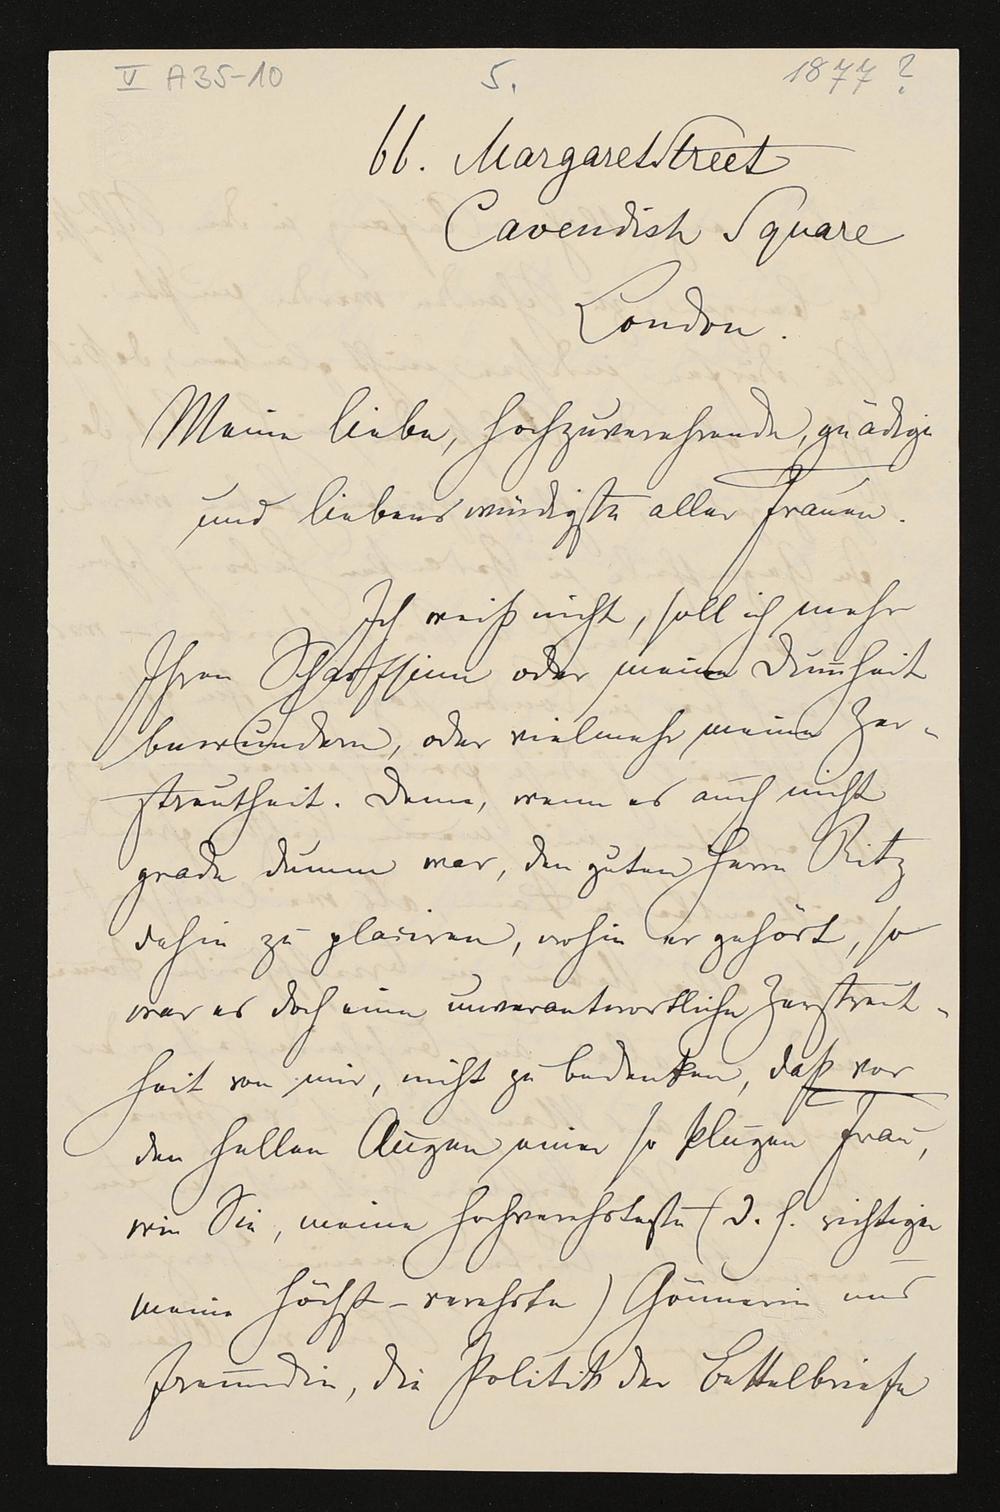 V A35-10 5. 1877?
66. Margaret Street
Cavendish Square
London.
Meine liebe, hochzuverehrende, gnädige
und liebenswürdigste aller Frauen.
Ich weiß nicht, soll ich mehr
Ihren Scharfsinn oder meine Dum̅heit
bewundern, oder vielmehr meine Zer-
streutheit. Denn, wenn es auch nicht
grade dumm war, den guten Herrn Ritz
dahin zu placiren, wohin er gehört, so
war es doch eine unverantwortliche Zerstreut-
heit von mir, nicht zu bedenken, daß vor
den hellen Augen einer so klugen Frau,
wie Sie, meine hochverehrteste (d. h. richtiger
meine höchst-verehrte) Gönnerin und
Freundin, die Politik der Bettelbriefe